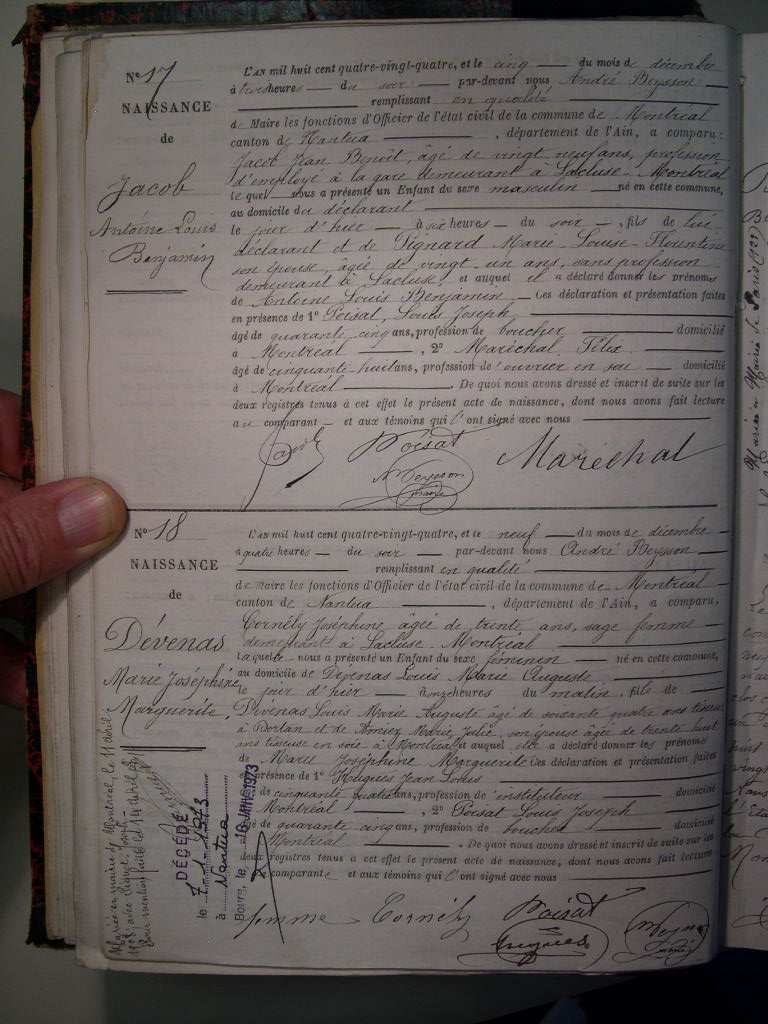 N° 17
NAISSANCE
de
Jacob
Antoine Louis
Benjamin
L'AN mil huit cent quatre-vingt-quatre, et le cinq du mois de décembre
à trois heures du soir par-devant nous André Beysson
remplissant en qualité
de Maire les fonctions d'Officier de l'état civil de la commune de Montréal
canton de Nantua , département de l'Ain, a comparu:
Jacob Jean Benoît, âgé de vingt neuf ans, profession
d'employé à la gare demeurant à Lacluse-Montréal
lequel nous a présenté un Enfant du sexe masculin né en cette commune,
au domicile du déclarant
le jour d'hier à six heures du soir , fils de lui
déclarant et de Pignard Marie-Louise-Florentine
son épouse, âgée de vingt-un ans, sans profession
demeurant à Lacluse et auquel il a déclaré donner les prénoms
de Antoine Louis Benjamin Ces déclaration et présentation faites
en présence de 1° Poisat, Louis Joseph,
âgé de quarante cinq ans, profession de boucher domicilié
à Montréal , 2° Maréchal Félix
âgé de cinquante-huit ans, profession d'ouvrier en soie domicilié
à Montréal De quoi nous avons dressé et inscrit de suite sur les
deux registres tenus à cet effet le présent acte de naissance, dont nous avons fait lecture
au comparant et aux témoins qui l'ont signé avec nous
Jacob Poisat Maréchal
ABeysson
maire
N° 18
NAISSANCE
de
Dévenas
Marie Joséphine
Marguerite
L'AN mil huit cent quatre-vingt-quatre, et le neuf du mois de décembre
à quatre heures du soir par-devant nous André Beysson
remplissant en qualité
de maire les fonctions d'Officier de l'état civil de la commune de Montréal
canton de Nantua , département de l'Ain, a comparu,
Cornély Joséphine âgée de trente ans, sage femme
demeurant à Lacluse-Montréal
laquelle nous a présenté un Enfant du sexe féminin né en cette commune,
au domicile de Dévenas Louis Marie Auguste
le jour d'hier à onze heures du matin, fils de
Dévenas Louis Marie Auguste âgé de soixante quatre ans tisseur
à Dortan et de Marie Julie, son épouse âgée de trente huit
ans tisseuse en soie à Montréal et auquel elle a déclaré donner les prénoms
de Marie Joséphine Marguerite Ces déclaration et présentation faites
en présence de 1° Hugues Jean Louis
âgé de cinquante quatre ans, profession d'instituteur domicilié
à Montréal , 2° Poisat Louis Joseph
âgé de quarante cinq ans, profession de boucher domicilié
à Montréal De quoi nous avons dressé et inscrit de suite sur les
deux registres tenus à cet effet le présent acte de naissance, dont nous avons fait lecture
à comparante et aux témoins qui l'ont signé avec nous
femme Cornély Poisat
Hugues
maire
Mariée en mairie de Montréal, le 11 avril
DÉCÉDÉ
le 7 1973
à Nantua
Bourg, le 16 JANV. 1973